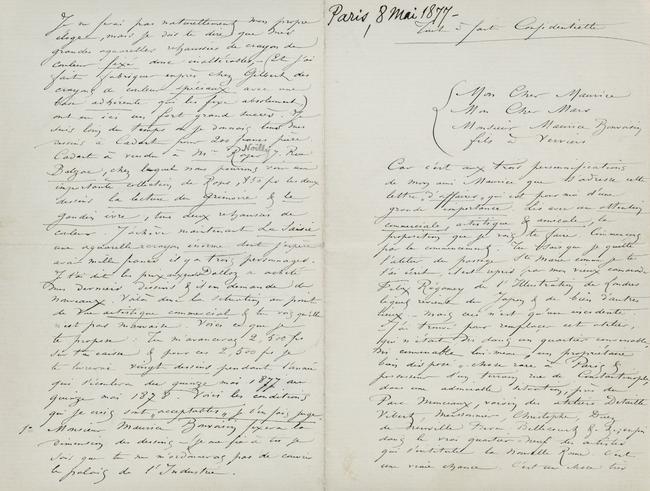 Paris, 8 Mai 1877 -
Tout à fait Confidentielle
Mon Cher Maurice
Mon Cher Mars
Monsieur Maurice Bonvoisin
fils à Verviers
Car c'est aux trois personnifications
de mon ami Maurice que j'adresse cette
lettre d'affaires, qui est pour moi d'une
grande importance. Lis avec attention
commerciale, artistique & amicale, la
proposition que je vais te faire. Commençons
par le commencement. Tu sais que je quitte
l'atelier du passage Ste Marie comme je te
l'ai écrit. Il est repris par mon vieux camarade
Félix Régamey de l'Illustration de Londres
lequel revient du Japon & de bien d'autres
lieux. mais ceci n'est qu'un incident.
J'ai trouvé pour remplacer cet atelier,
qui n'était ni dans un quartier convenable,
ni convenable lui-même, un propriétaire
bien disposé - chose rare à Paris &
possesseur d'un terrain rue de Constantinople
dans une admirable situation, près du
Parc Monceaux, voisin des ateliers Detaille
Vibert, Meissonnier, Christophe, Duez
de Neuville
dans le vrai quartier neuf des artistes
qui s'intitule la Nouvelle Rome. C'est
une vraie chance. C'est un chose
Je ne ferai pas naturellement mon propre
éloge, mais je dois te dire que mes
grandes aquarelles rehaussées de crayon de
couleur fixé donc inaltérables - (Et j'ai
fait fabriquer exprès chez Gilbert des
crayons de couleur spéciaux avec une
base adhérente qui les fixe absolument)
ont eu ici un fort grand succès. Je
suis loin du temps où je donnais tous mes
dessins à Cadart pour 200 francs pièce.
Cadart a vendu à Mr Noilly, Rue
Balzac, chez lequel nous pourrons voir une
importante collection de Rops, 850 fr les deux
dessins la lecture du Grimoire & le
gandin ivre, tous deux rehaussés de
couleur. J'achève maintenant La Saisie
une aquarelle crayon énorme dont j'espère
avoir mille francs il y a trois personnages.
Je t'ai dit les prix auxquels Dalloz a acheté
mes derniers dessins & il en demande de
nouveaux. Voilà donc la situation au point
de vue artistique commercial & tu vois qu'elle
n'est pas mauvaise. Voici ce que je
te propose: Tu m'avanceras 2,500 frs
sur ta caisse & pour ces 2,500 frs je
te livrerai vingt dessins pendant l'année
qui s'écoulera du quinze mai 1877 au
quinze mai 1878. Voici les conditions
que je crois sont acceptables, je t'en fais juge
1° Monsieur Maurice Bonvoisin fixera la
dimension des dessins - Je me fie à ce je
sais que tu ne m'ordonneras pas de couvrir
le palais de l'Industrie.